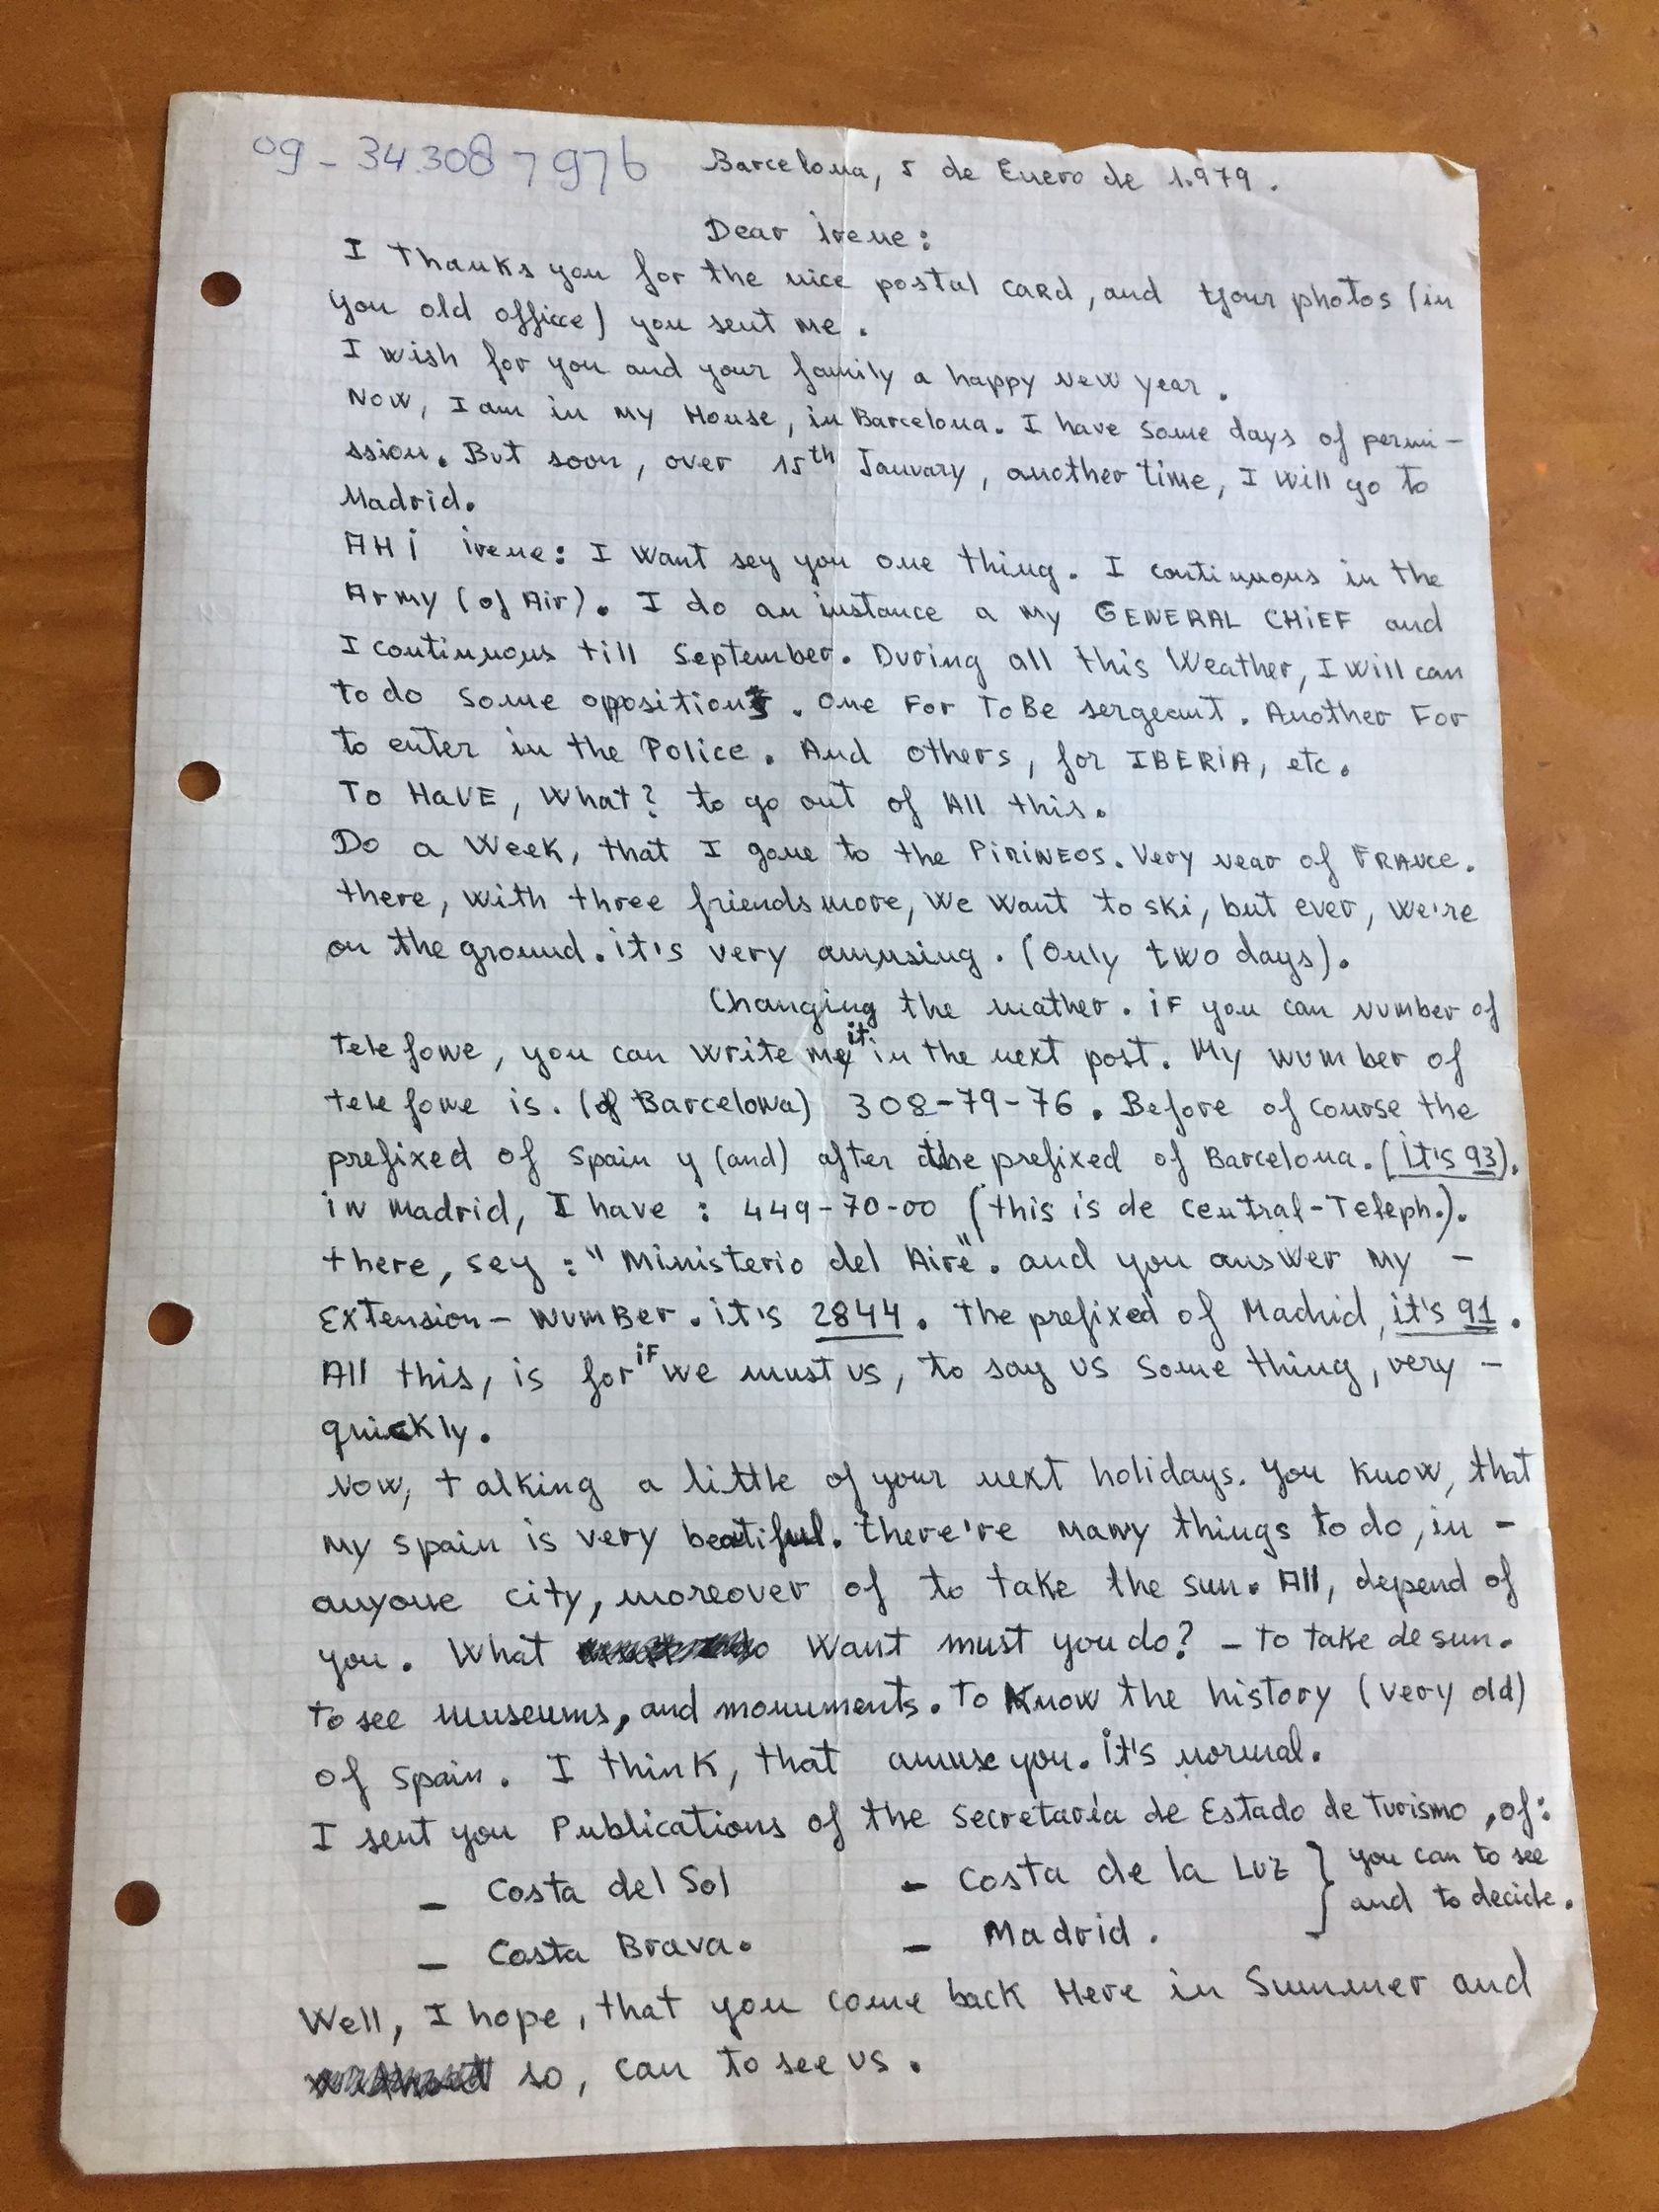 09-34.308 7976
Barcelona, 5 de Enero de 1.979.
Dear irene:
I thanks you for the nice postal card, and your photos (in
you old office) you sent me.
I wish for you and your family a happy new year.
Now, I am in my House, in Barcelona. I have some days of permi-
ssion. But soon, over 15th January, another time, I will go to
Madrid.
AH¡ irene: I want sey you one thing. I continuous in the
Army (of Air). I do an instance a my GENERAL CHiEF and
I continuous till September. During all this Weather, I will can
to do some oppositions. One For To Be sergeant. Another For
to enter in the Police. And others, for IBERiA, etc.
To HaVE, What? to go out of All this.
Do a Week, that I gone to the PiRiNEOS. Very near of FRANce.
there, with three friends more, We Want to ski, but ever, we're
on the ground. it's very amusing. (Only two days).
Changing the mather. iF you can number of
telefone, you can write me it in the next post. My number of
telefone is. (of Barcelona) 308-79-76. Before of course the
prefixed of Spain y (and) after the prefixed of Barcelona. (it's 93).
in Madrid, I have: 449-70-00 (this is de Central-Teleph.).
there, sey: "Ministerio del Aire". and you answer my -
Extension - NumBer. it's 2844. the prefixed of Madrid, it's 91.
All this, is for iF we must us, to say us some thing, very -
quickly.
Now, talking a little of your next holidays. You know, that
my spain is very beatiful. there're many things to do, in -
anyone city, moreover of to take the sun. All, depend of
you. What Want must you do? - to take de sun.
to see museums, and monuments. To know the history (very old)
of spain. I think, that amuse you. it's normal.
I sent you Publications of the Secretaría de Estado de turismo, of:
- Costa del Sol - Costa de la Luz } you can to see
and to decide.
- Costa Brava. - Madrid.
Well, I hope, that you come back Here in Summer and
so, can to see us.